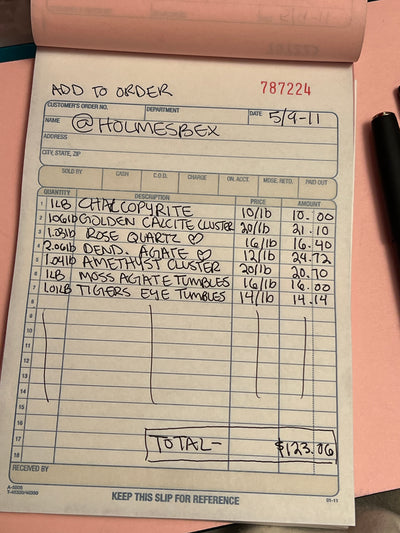 ADD TO ORDER
787224
CUSTOMER'S ORDER NO. DEPARTMENT DATE 5/9-11
NAME @HOLMESBEX
ADDRESS
CITY, STATE, ZIP
SOLD BY CASH C.O.D. CHARGE ON. ACCT. MDSE. RETD. PAID OUT
QUANTITY DESCRIPTION PRICE AMOUNT
1 1LB CHALCOPYRITE 10/lb 10.00
2 1.06lb GOLDEN CALCITE CLUSTER 20/lb 21.10
3 1.03lb ROSE QUARTZ ♡ 16/lb 16.40
4 2.06lb DEND. AGATE ♡ 12/lb 24.72
5 1.04lb AMETHYST CLUSTER 20/lb 20.70
6 1LB MOSS AGATE TUMBLES 16/lb 16.00
7 1.01LB TIGERS EYE TUMBLES 14/lb 14.14
8
9
10
11
12
13
14
15
16
17 TOTAL- $123.06
18
RECEIVED BY
KEEP THIS SLIP FOR REFERENCE
01-11